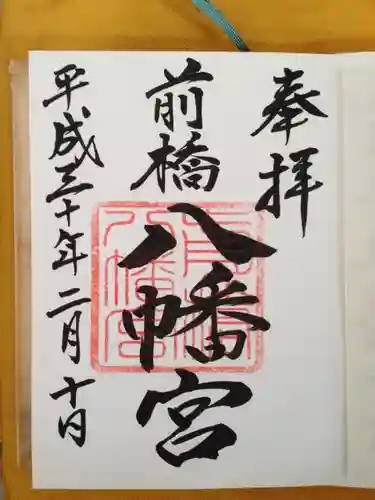 奉拝
前橋
八幡宮
平成三十年二月十日